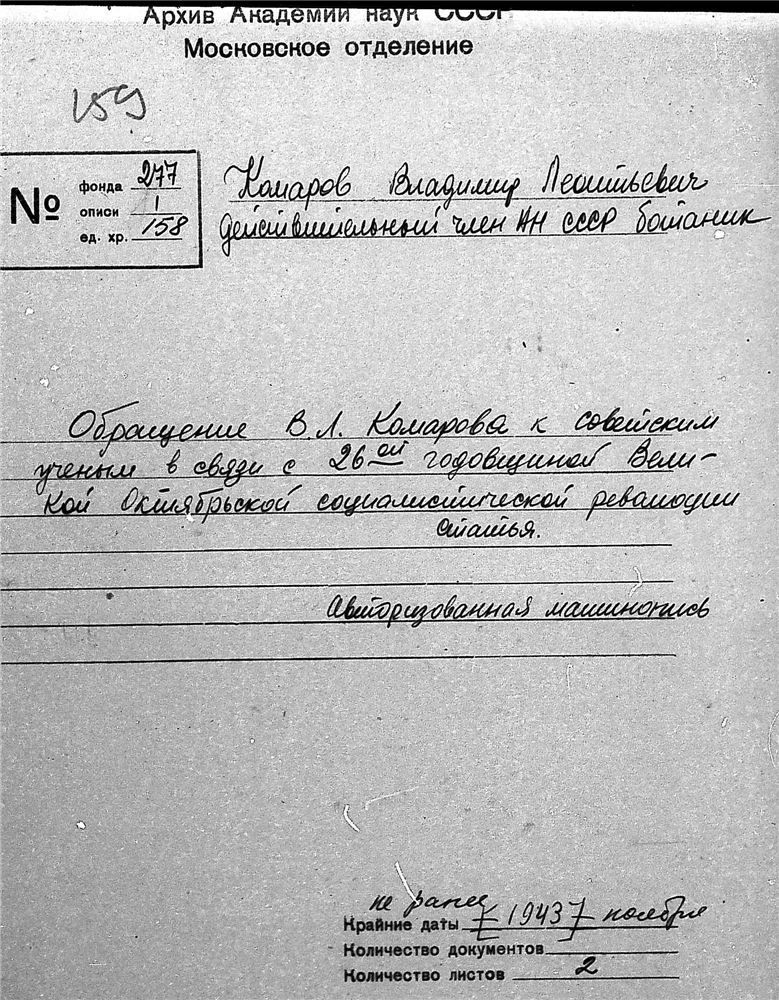 Архив Академии наук СССР
Московское отделение
159
№
фонда 277
описи 1
ед. хр. 158
Комаров Владимир Леонтьевич
действительный член АН СССР ботаник
Обращение В.Л. Комарова к советским
ученым в связи с 26-ой годовщиной Вели-
кой Октябрьской социалистической революции
Статья.
Авторизованная машинопись
не ранее
Крайние даты [1943] ноября
Количество документов
Количество листов 2